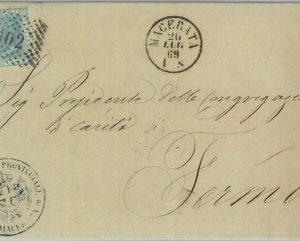 02
MACERATA
20
LUG
69
1 S
Sig Presidente della Congregaz
di carità di
Fermo
PROVINCIALE
MACER